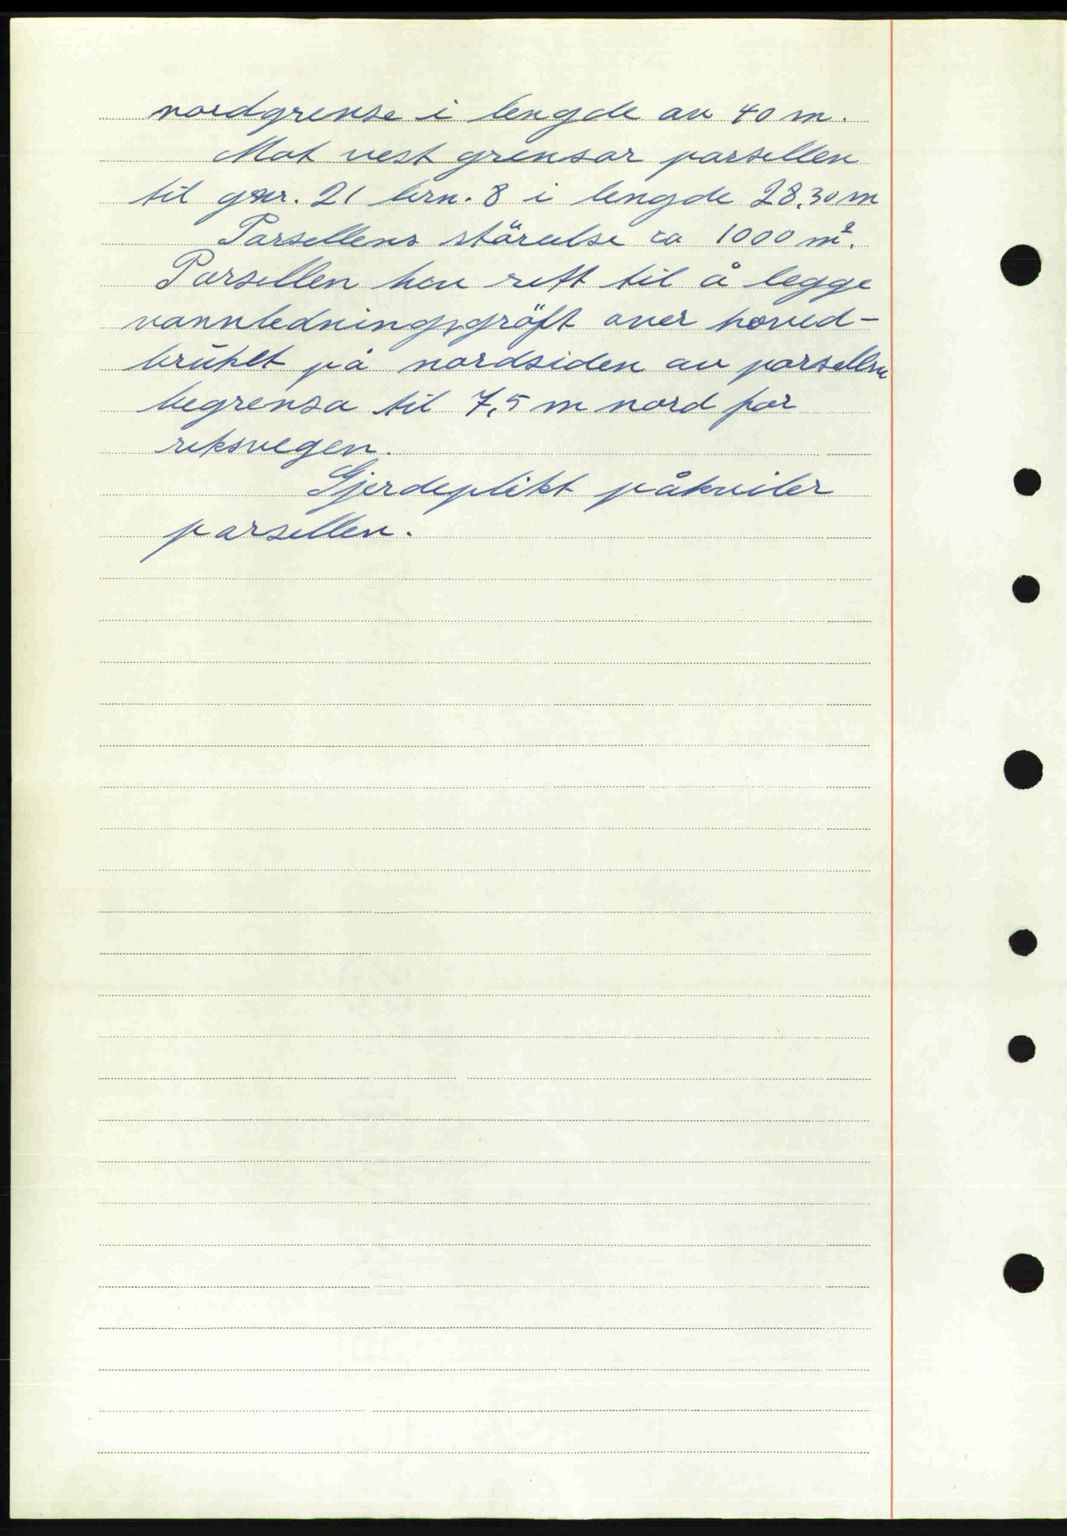 nordgrense i lengde av 40 m.
Mot vest grensar parsellen
til gnr. 21 brn. 8 i lengde 28,30 m
Parsellens störelse ca 1000 m².
Parsellen har rett til å legge
vannledningsgröft over hoved-
brühet på nordsiden av parsellen
begrensa til 7,5 m nord for
riksvegen.
Gjerdeplikt påkviler
parsellen.